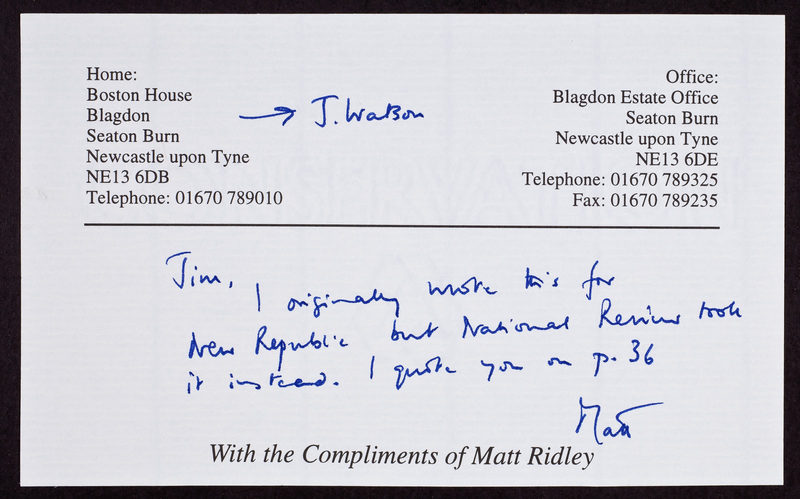 Home:
Boston House
Blagdon
Seaton Burn
Newcastle upon Tyne
NE13 6DB
Telephone: 01670 789010
→ J. Watson
Office:
Blagdon Estate Office
Seaton Burn
Newcastle upon Tyne
NE13 6DE
Telephone: 01670 789325
Fax: 01670 789235
Jim,
I originally wrote this for
New Republic but National Review took
it instead. I quote you on p. 36
Matt
With the Compliments of Matt Ridley